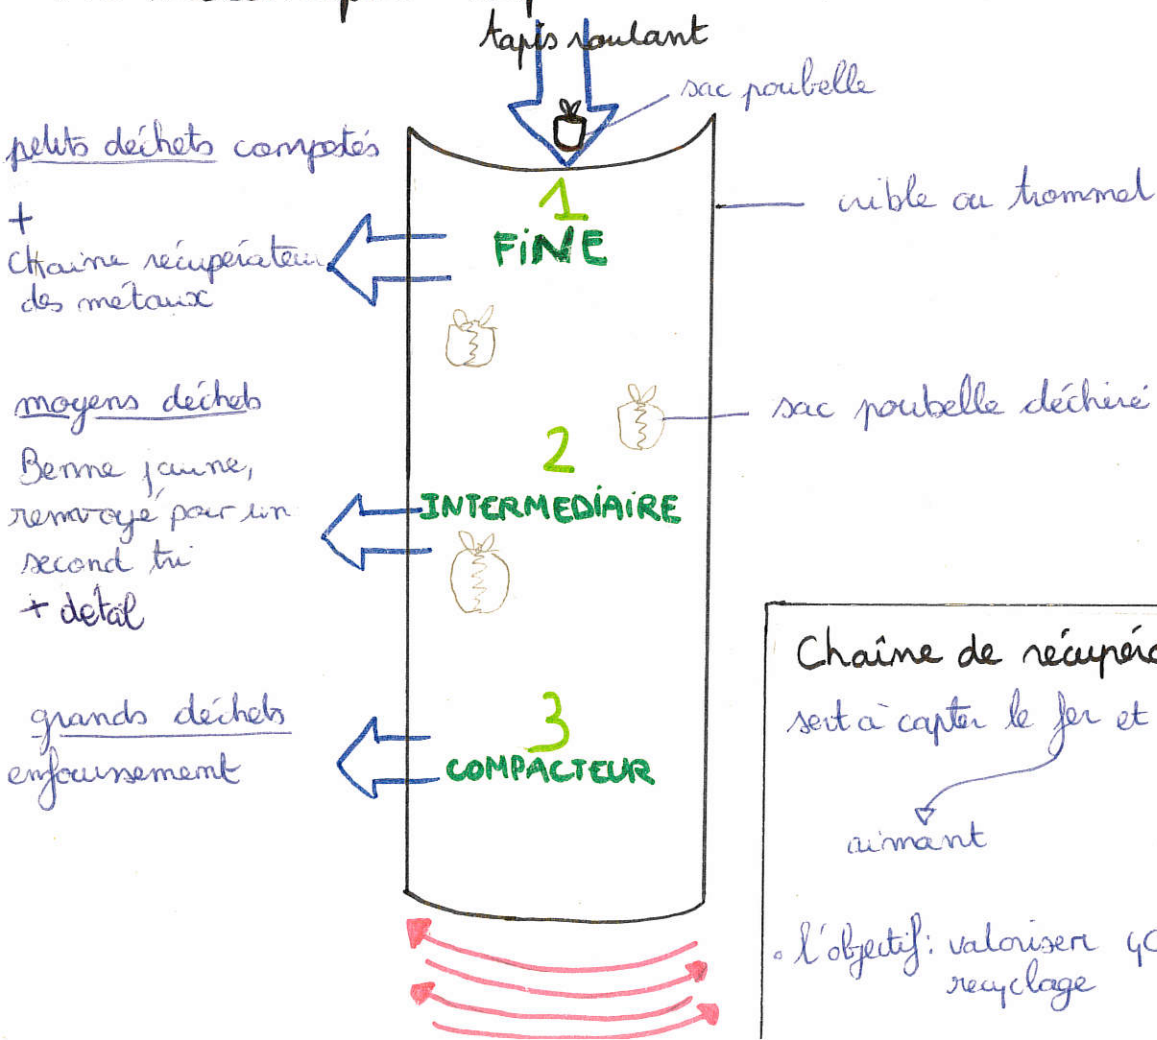 tapis roulant
sac poubelle
petits déchets compostés
+
Chaine récupérateur
des métaux
1
FiNE
crible ou trommel
moyens déchets
Benne jaune,
renvoyé pour un
second tri
+ detal
sac poubelle déchiré
2
INTERMEDIAIRE
grands déchets
enfouissement
3
COMPACTEUR
Chaîne de récupéra
sert à capter le fer et
aimant
l'objectif: valoriser 40
recyclage